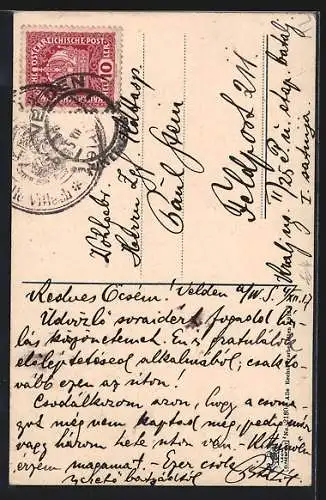 K.K. ÖSTERREICHISCHE POST
10
VELDEN
Wohlgeb.
Herrn Zgf.
Paul Stein
Feldpost 211.
II/25 P. u. etap. batalj
I. satnija
Kedves Öcsém! Velden a/W. S. XII. 17
Üdvözlő soraidért fogadd há-
lás köszönetemet. Én is gratulálok
előléptetésed alkalmából, csak to-
vább ezen az úton!
Csodálkozom azon, hogy a csoma-
got még nem kaptad meg, pedig már
vagy három hete úton van. Kitűnően
érzem magamat. Ezer csók
szerető bátyádtól